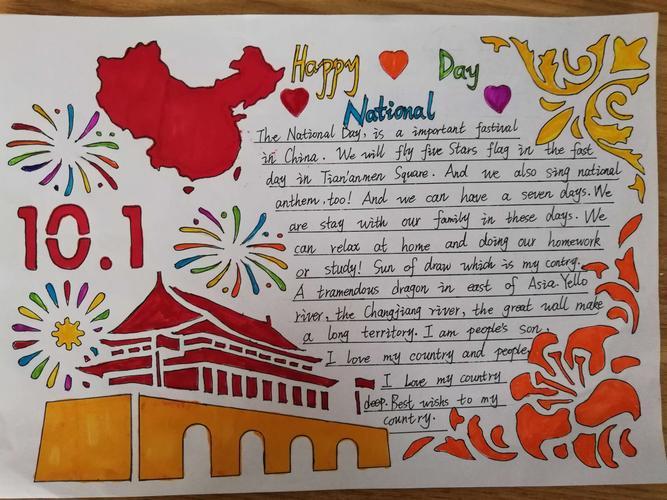 Happy Day
National
10.1
The National Day, is a important fastival
in China. We will fly five Stars flag in the fast
day in Tian'anmen Square. And we also sing national
anthem, too! And we can have a seven days. We
are stay with our family in these days. We
can relax at home and doing our homework
or study! Sun of draw which is my contry.
A tramendous dragon in east of Asia. Yello
river, the Changjiang river, the great wall make
a long territory. I am people's son,
I love my country and people,
I Love my country
deep. Best wishs to my
country.